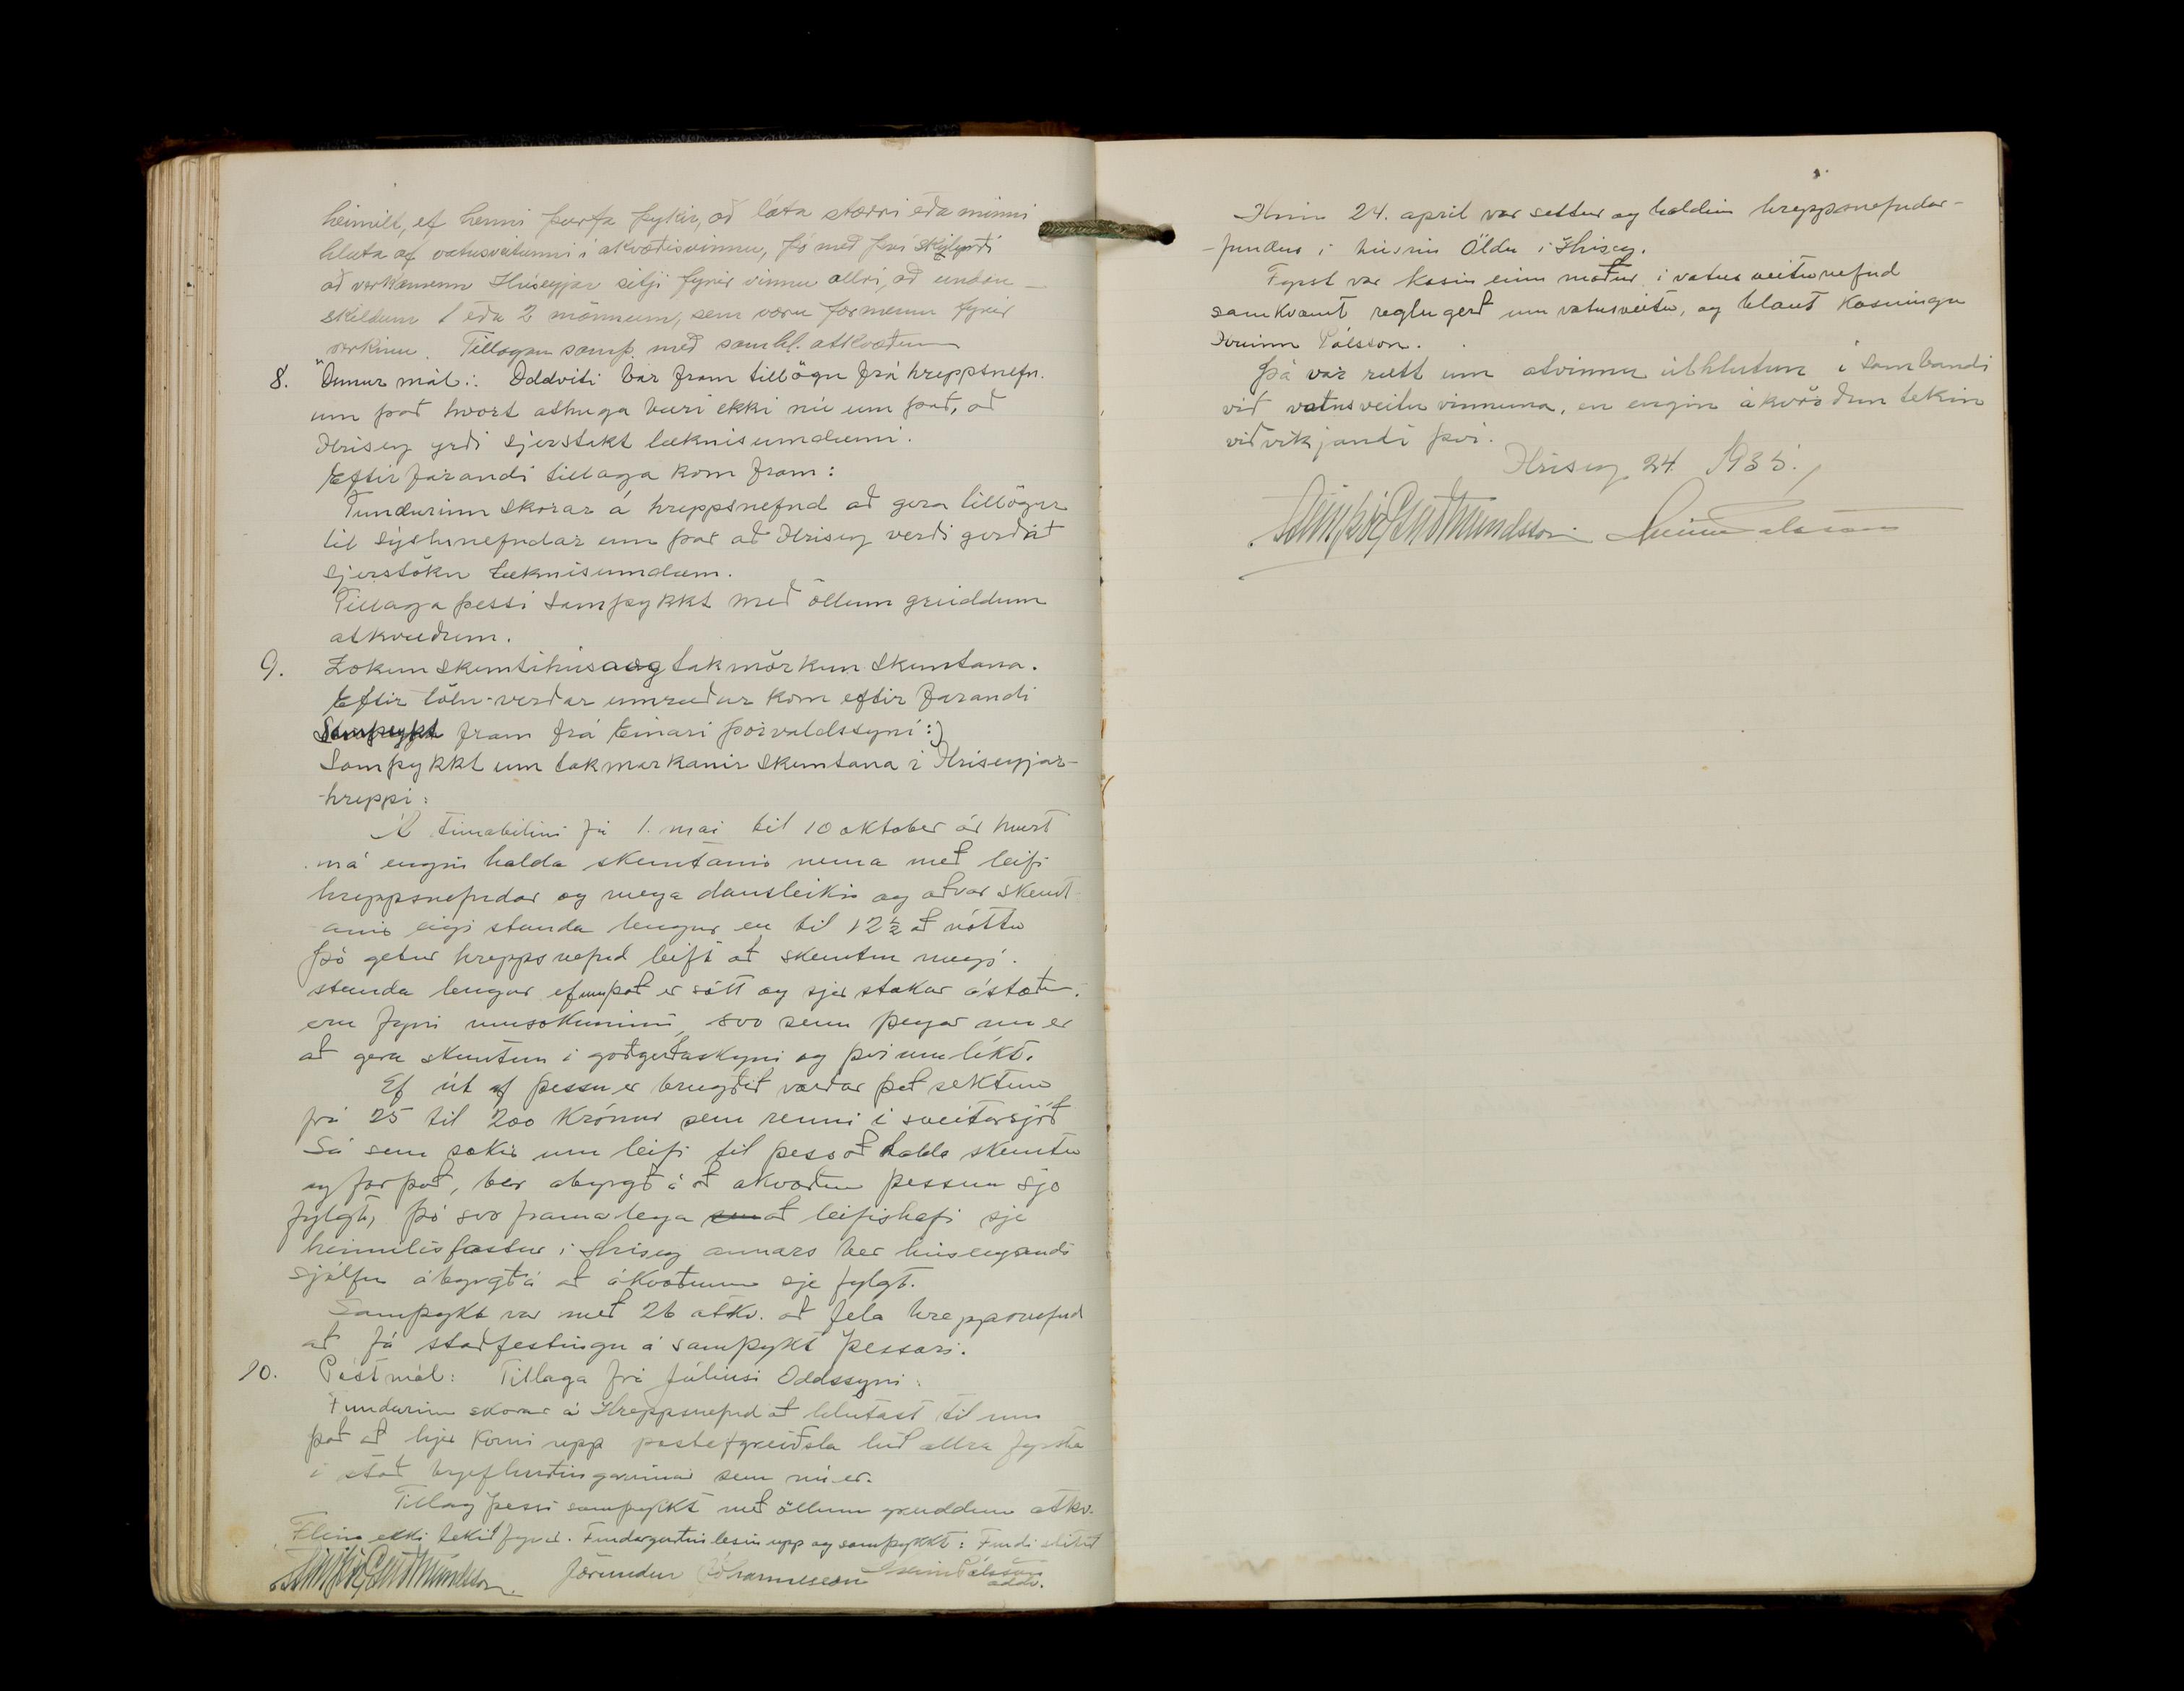 heimilt, ef henni þurfa þykir, að láta stærri eða minni
hluta af vatnsveitunni i akvæðisvinnu, þó með því skilyrði
að verkamenn Hriseyjar sitji fyrir vinnu allri, að undan-
skildum 1 eða 2 mönnum, sem væru formenn fyrir
verkinu. Tillagan samþ. með samhl. atkvæðum
8. Önnur mál: Oddviti bar fram tillögu frá hreppsnefn.
um það hvort athuga bæri ekki nú um það, að
Hrisey yrði sjerstakt læknisumdæmi.
Eftirfarandi tillaga kom fram:
Fundurinn skorar á hreppsnefnd að gera tillögur
til sýslunefndar um það að Hrisey verði gerð að
sjerstöku læknisumdæm.
Tillaga þessi samþykkt með öllum greiddum
atkvæðum.
9. Lokun skemtihúsa og takmörkun skemtana.
Eftir tölu-verðar umræður kom eftir farandi
Samþykt fram frá Einari Þorvaldssyni:)
Samþykkt um takmarkanir skemtana i Hriseyjar-
-hreppi:
Á timabilini frá 1. mai til 10 oktober ár hvert
má engin halda skemtanir nema með leifi
hreppsnefndar og mega dansleikir og aðrar skemt-
anir eigi standa lengur en til 12 1/2 að nóttu
Þó getur hreppsnefnd leift að skemtun megi
standa lengur ef um það er sótt og sjer stakar ástæður
eru fyrir umsokninni, svo sem þegar um er
að gera skemtun i goðgerðaskyni og þvi um líkt.
Ef út af þessu er brugðið varðar það sektum
frá 25 til 200 Krónur sem renni i sveitarsjóð
Sá sem sækir um leifi til þess að halda skemtun
og fær það, ber abyrgð á að akvæðum þessum sje
fylgt, þó svo framarlega að leifishafi sje
heimilisfastur i Hrisey annars ber húseigandi
sjálfur ábyrgð á að ákvæðunum sje fylgt.
Samþykt var með 26 atkv. að fela hreppsnefnd
að fá staðfestingu á samþykt þessari.
10. Póstmál: Tillaga frá Júliusi Oddssyni:
Fundurinn skorar á Hreppsnefnd að hlutast til um
það að hjer komi upp postafgreiðsla hið allra fyrsta
i stað brjefhirðingarinnar sem nú er.
Tillag þessi samþykkt með öllum greiddum atkv.
Fleira ekki tekið fyrir. Fundargerðin lesin upp og samþykkt: Fundi slitið
Guðmundsson Jörundur Jóhannesson Hreinn Pálsson
oddv.
Hinn 24. april var settur og haldin hreppsnefndar-
-fundur i húsinu Öldu i Hrisey.
Fyrst var kosin einn maður i vatnsveitunefnd
samkvæmt reglugerð um vatnsveitu, og hlaut kosningu
Hreinn Pálsson.
Þá var rætt um atvinnu úthlutun i sambandi
við vatnsveitu vinnuna, en engin ákvörðun tekin
viðvikjandi þvi.
Hrisey 24. 1935.
Guðmundsson Hreinn Pálsson